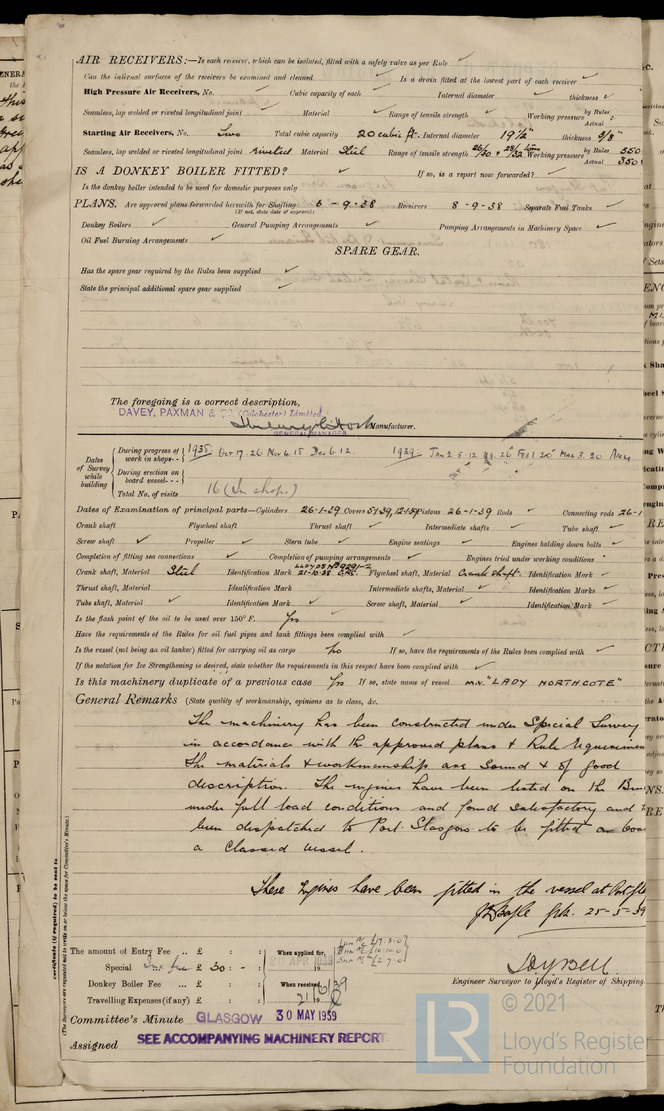 AIR RECEIVERS:—Is each receiver, which can be isolated, fitted with a safety valve as per Rule ✓
Can the internal surfaces of the receivers be examined and cleaned ✓ Is a drain fitted at the lowest part of each receiver ✓
High Pressure Air Receivers, No. Cubic capacity of each ✓ Internal diameter ✓ thickness ✓
Seamless, lap welded or riveted longitudinal joint ✓ Material ✓ Range of tensile strength ✓ Working pressure by Rules Actual
Starting Air Receivers, No. Two Total cubic capacity 20 cubic ft. Internal diameter 19½" thickness 9/8"
Seamless, lap welded or riveted longitudinal joint riveted Material Steel Range of tensile strength 26/30 & 28/32 tons Working pressure by Rules 350 Actual 350
IS A DONKEY BOILER FITTED? ✓ If so, is a report now forwarded? ✓
Is the donkey boiler intended to be used for domestic purposes only
PLANS. Are approved plans forwarded herewith for Shafting 6-9-38 Receivers 8-9-38 Separate Fuel Tanks ✓
(If not, state date of approval)
Donkey Boilers ✓ General Pumping Arrangements ✓ Pumping Arrangements in Machinery Space ✓
Oil Fuel Burning Arrangements ✓
SPARE GEAR.
Has the spare gear required by the Rules been supplied ✓
State the principal additional spare gear supplied ✓
The foregoing is a correct description,
DAVEY, PAXMAN & CO. (Colchester) Limited
GENERAL MANAGER Manufacturer.
Dates of Survey while building
During progress of work in shops - - 1938 Oct 17. 26 Nov 4. 15 Dec 6. 12. 1939 Jan 2. 5. 12 26 Feb 1. 20 Mar 3. 20
During erection on board vessel - - -
Total No. of visits 16 (In shops)
Dates of Examination of principal parts—Cylinders 26-1-39 Covers Pistons 26-1-39 Rods ✓ Connecting rods 26-1
Crank shaft Flywheel shaft Thrust shaft ✓ Intermediate shafts ✓ Tube shaft ✓
Screw shaft ✓ Propeller ✓ Stern tube ✓ Engine seatings ✓ Engines holding down bolts ✓
Completion of fitting sea connections ✓ Completion of pumping arrangements ✓ Engines tried under working conditions
Crank shaft, Material Steel Identification Mark LLOYDS 21-10-38 Flywheel shaft, Material Crank shaft. Identification Mark ✓
Thrust shaft, Material Identification Mark Intermediate shafts, Material ✓ Identification Marks ✓
Tube shaft, Material ✓ Identification Mark ✓ Screw shaft, Material ✓ Identification Mark ✓
Is the flash point of the oil to be used over 150° F. Yes
Have the requirements of the Rules for oil fuel pipes and tank fittings been complied with ✓
Is the vessel (not being an oil tanker) fitted for carrying oil as cargo no If so, have the requirements of the Rules been complied with ✓
If the notation for Ice Strengthening is desired, state whether the requirements in this respect have been complied with ✓
Is this machinery duplicate of a previous case Yes If so, state name of vessel M.V. "LADY NORTHCOTE"
General Remarks (State quality of workmanship, opinions as to class, &c.
The machinery has been constructed under Special Survey
in accordance with the approved plans & Rule requiremen
The materials & workmanship are sound & of good
description. The engines have been tested on the
under full load conditions and found satisfactory and
been despatched to Port Glasgow to be fitted on boa
a classed vessel.
These engines have been fitted in the vessel at
25-5-39
certificate (if required) to be sent to
(The Surveyors are requested not to write on or below the space for Committee's Minute.)
The amount of Entry Fee .. £ : :
Special £ 30 : - :
Donkey Boiler Fee ... £ : :
Travelling Expenses (if any) £ : :
When applied for, APR 1939
When received,
Engineer Surveyor to Lloyd's Register of Shipping.
Committee's Minute GLASGOW 30 MAY 1939
Assigned SEE ACCOMPANYING MACHINERY REPORT.
© 2021
LR Lloyd's Register
Foundation